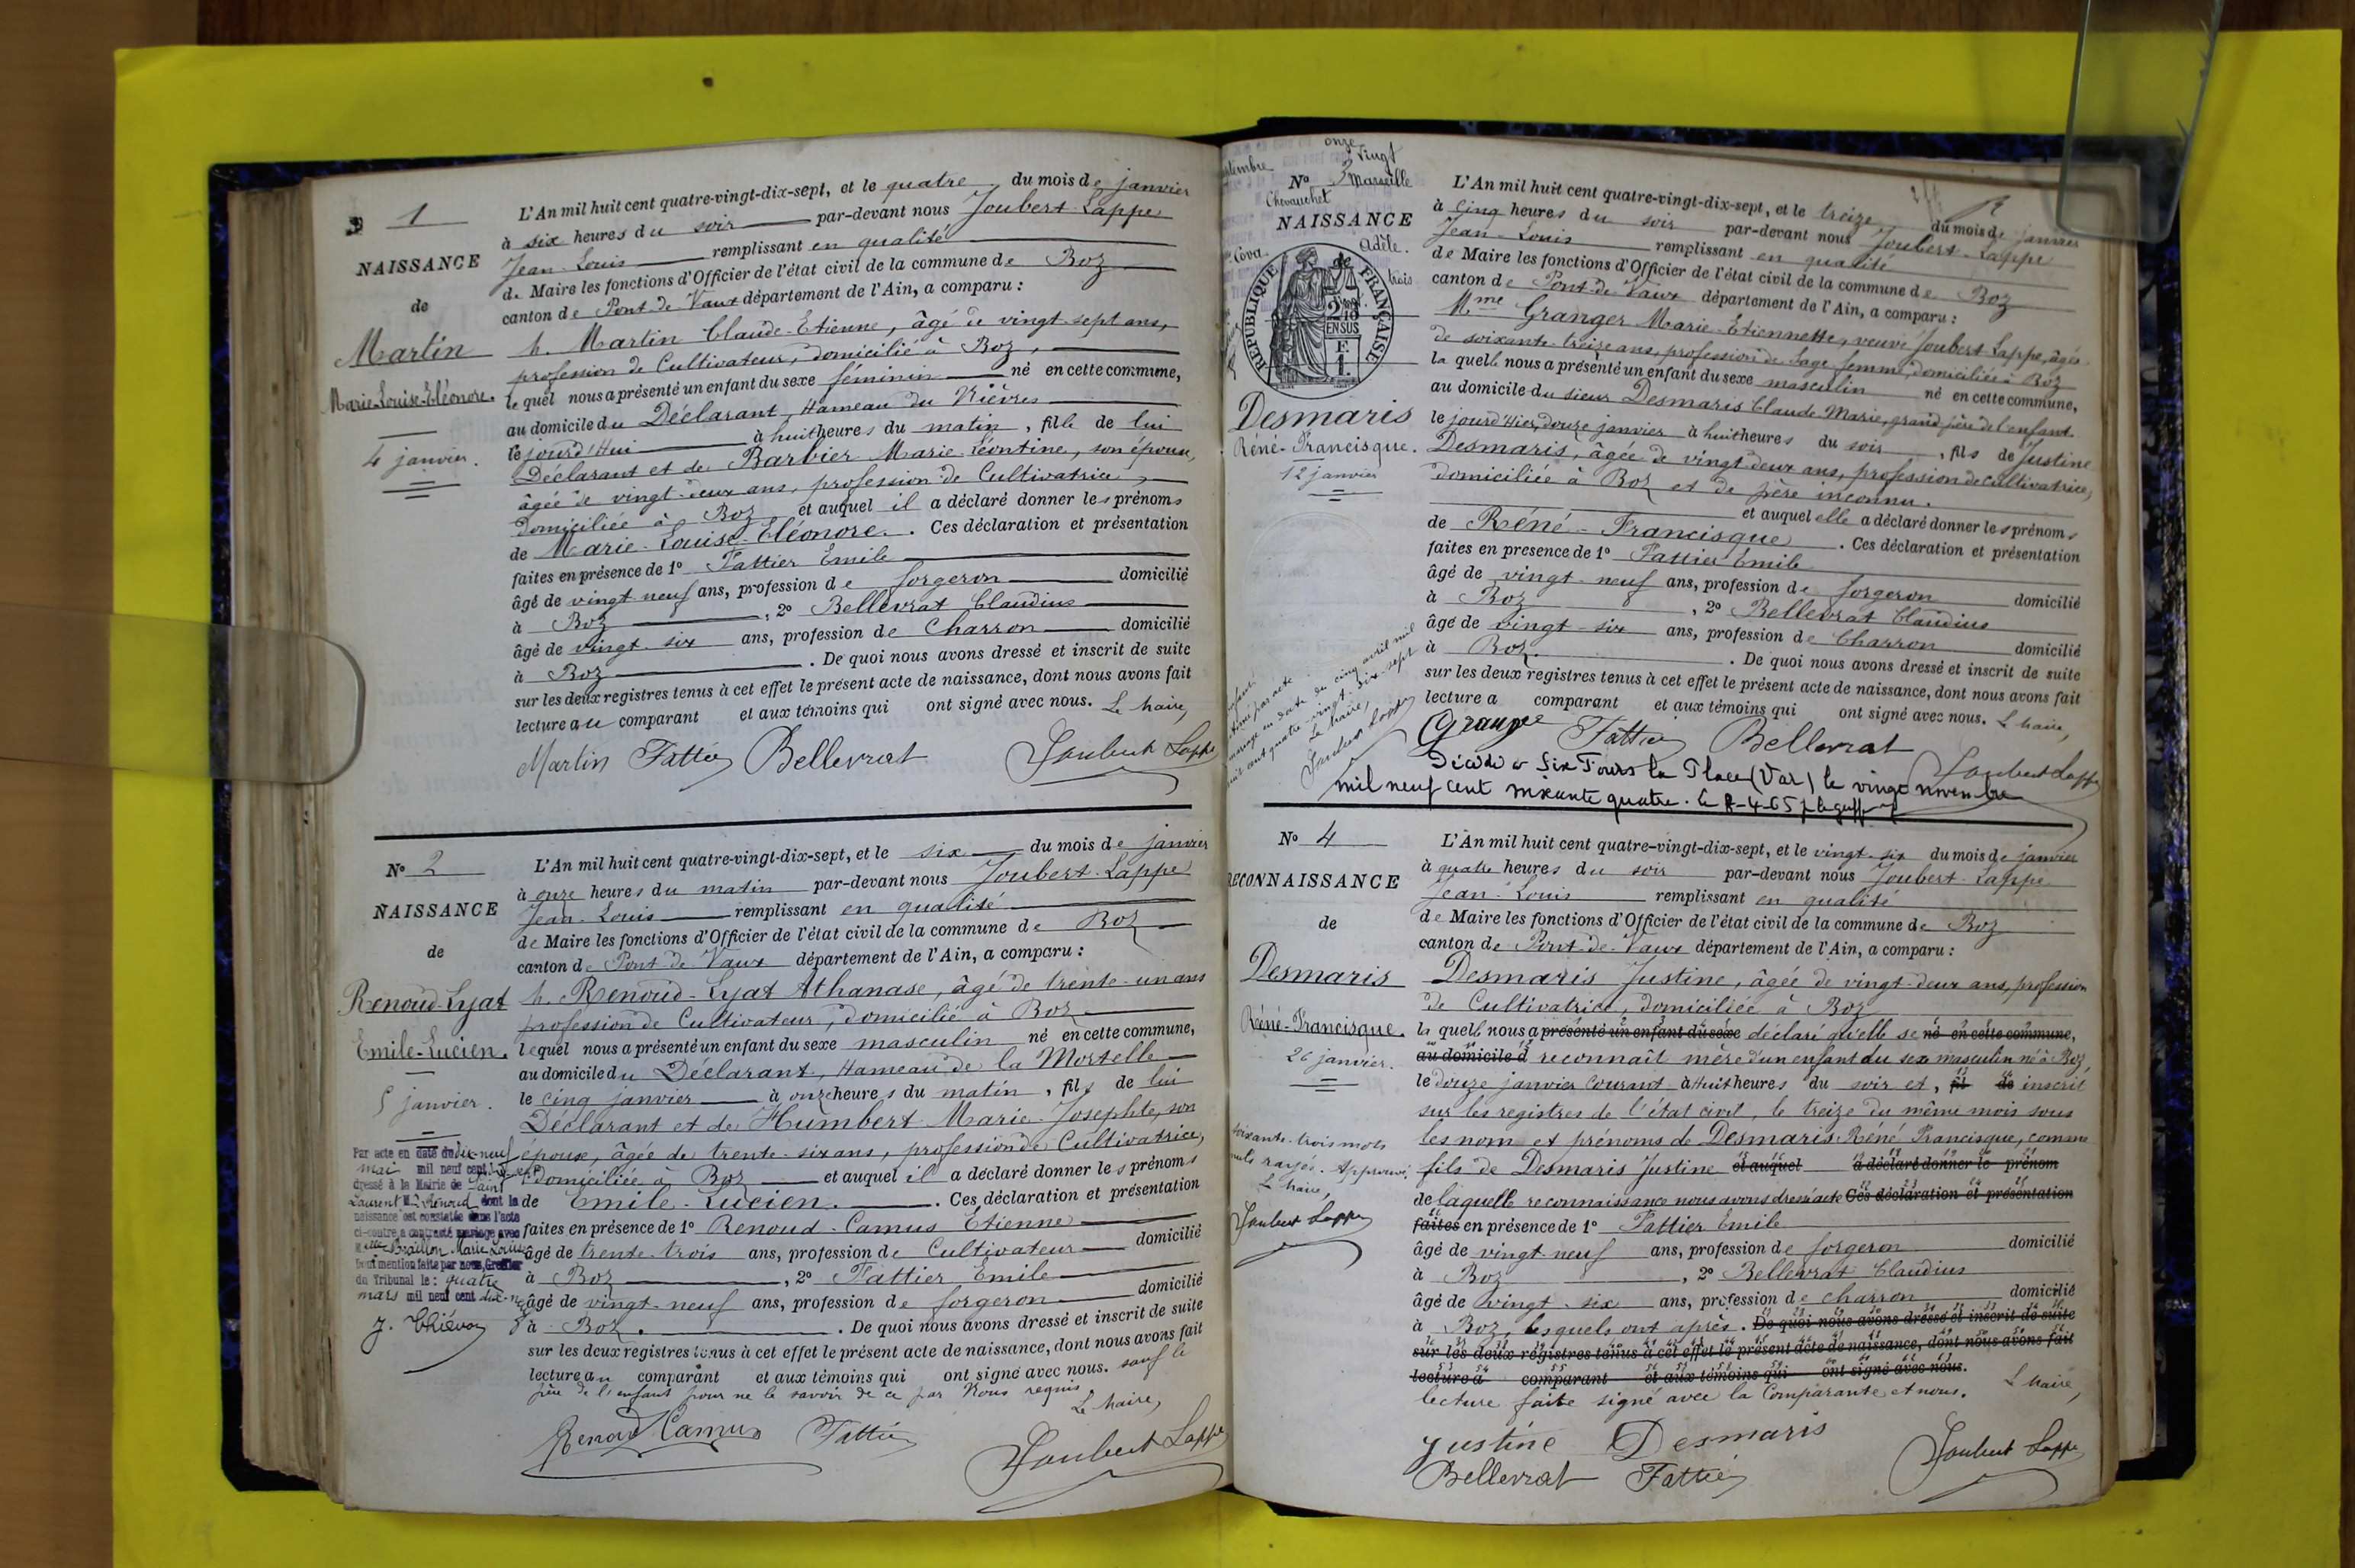 1
NAISSANCE
de
Martin
Marie-Louise-Eléonore.
4 janvier.
L'An mil huit cent quatre-vingt-dix-sept, et le quatre du mois de janvier
à six heures du soir par-devant nous Joubert-Lappe
Jean-Louis remplissant en qualité
de Maire les fonctions d'Officier de l'état civil de la commune de Boz
canton de Pont-de-Vaux département de l'Ain, a comparu :
h. Martin Claude-Etienne, âgé de vingt-sept ans,
profession de Cultivateur, domicilié à Boz,
lequel nous a présenté un enfant du sexe féminin né en cette commune,
au domicile du Déclarant, Hameau du Nièvres
le jourd'Hui à huit heures du matin, fille de lui
Déclarant et de Barbier Marie-Léontine, son épouse,
âgée de vingt-deux ans, profession de Cultivatrice,
domiciliée à Boz et auquel il a déclaré donner les prénoms
de Marie-Louise-Eléonore. . Ces déclaration et présentation
faites en présence de 1° Fattier Emile
âgé de vingt neuf ans, profession de forgeron domicilié
à Boz , 2° Bellevrat Claudius
âgé de vingt-six ans, profession de Charron domicilié
à Boz . De quoi nous avons dressé et inscrit de suite
sur les deux registres tenus à cet effet le présent acte de naissance, dont nous avons fait
lecture au comparant et aux témoins qui ont signé avec nous. Le Maire,
Martin Fattier Bellevrat Joubert Lappe
N° 2
NAISSANCE
de
Renoud-Lyat
Emile-Lucien.
5 janvier.
Par acte en date du dix-neuf
mai mil neuf cent
dressé à la Mairie de Saint
Laurent M. Renoud dont la
naissance est constatée dans l'acte
ci-contre a contracté mariage avec
Melle Braillon Marie Louise
Dont mention faite par nous, Greffier
du Tribunal le : quatre
mars mil neuf cent dix-neuf
L'An mil huit cent quatre-vingt-dix-sept, et le six du mois de janvier
à onze heures du matin par-devant nous Joubert-Lappe
Jean-Louis remplissant en qualité
de Maire les fonctions d'Officier de l'état civil de la commune de Boz
canton de Pont-de-Vaux département de l'Ain, a comparu :
h. Renoud-Lyat Athanase, âgé de trente-un ans
profession de Cultivateur, domicilié à Boz
lequel nous a présenté un enfant du sexe masculin né en cette commune,
au domicile du Déclarant, Hameau de la Mortelle
le cinq janvier à onze heures du matin, fils de lui
Déclarant et de Humbert Marie-Josephte, son
épouse, âgée de trente-six ans, profession de Cultivatrice,
domiciliée à Boz et auquel il a déclaré donner les prénoms
de Emile-Lucien. . Ces déclaration et présentation
faites en présence de 1° Renoud-Camus Etienne
âgé de trente-trois ans, profession de Cultivateur domicilié
à Boz , 2° Fattier Emile
âgé de vingt-neuf ans, profession de forgeron domicilié
à Boz. . De quoi nous avons dressé et inscrit de suite
sur les deux registres tenus à cet effet le présent acte de naissance, dont nous avons fait
lecture au comparant et aux témoins qui ont signé avec nous. sauf le
père de l'enfant pour ne le savoir de ce par Nous requis
Le Maire,
Renoud Camus Fattier Joubert Lappe
onze
vingt
N° 3 Marseille
Chevauchet
NAISSANCE
Adèle.
Cova
de
trois
RÉPUBLIQUE FRANÇAISE
EN SUS
Desmaris
Réné-Francisque.
12 janvier
mariage en date du cinq avril mil
huit cent quatre-vingt-dix-sept
Le Maire,
Joubert Lappe
L'An mil huit cent quatre-vingt-dix-sept, et le treize du mois de janvier
à cinq heures du soir par-devant nous Joubert-Lappe
Jean-Louis remplissant en qualité
de Maire les fonctions d'Officier de l'état civil de la commune de Boz
canton de Pont-de-Vaux département de l'Ain, a comparu :
Mme Granger Marie-Etiennette, veuve Joubert Lappe, âgée
de soixante-treize ans, profession de Sage femme, domiciliée à Boz
laquelle nous a présenté un enfant du sexe masculin né en cette commune,
au domicile du sieur Desmaris Claude Marie, grand père de l'enfant
le jourd'Hier, douze janvier à huit heures du soir, fils de Justine
Desmaris, âgée de vingt-deux ans, profession de cultivatrice,
domiciliée à Boz et de père inconnu.
et auquel elle a déclaré donner les prénoms
de Réné-Francisque . Ces déclaration et présentation
faites en presence de 1° Fattier Emile
âgé de vingt-neuf ans, profession de forgeron domicilié
à Boz , 2° Bellevrat Claudius
âgé de vingt-six ans, profession de Charron domicilié
à Boz. . De quoi nous avons dressé et inscrit de suite
sur les deux registres tenus à cet effet le présent acte de naissance, dont nous avons fait
lecture a comparant et aux témoins qui ont signé avec nous. Le Maire,
Granger Fattier Bellevrat Joubert Lappe
Décédé à Six Fours la Plage (Var) le vingt novembre
mil neuf cent soixante quatre. Le 8-4-65
N° 4
RECONNAISSANCE
de
Desmaris
Réné-Francisque.
26 janvier.
soixante-trois mots
nuls rayés. Approuvé.
Le Maire,
Joubert Lappe
L'An mil huit cent quatre-vingt-dix-sept, et le vingt-six du mois de janvier
à quatre heures du soir par-devant nous Joubert-Lappe
Jean-Louis remplissant en qualité
de Maire les fonctions d'Officier de l'état civil de la commune de Boz
canton de Pont-de-Vaux département de l'Ain, a comparu :
Desmaris Justine, âgée de vingt-deux ans, profession
de Cultivatrice, domiciliée à Boz
laquelle nous a présenté un enfant du sexe déclaré qu'elle se né en cette commune,
au domicile d reconnaît mère d'un enfant du sexe masculin né à Boz,
le douze janvier courant à Huit heures du soir et, fil de inscrit
sur les registres de l'état civil, le treize du même mois sous
les nom et prénoms de Desmaris Réné Francisque, comme
fils de Desmaris Justine et auquel a déclaré donner le prénom
de laquelle reconnaissance nous avons dressé acte Ces déclaration et présentation
faites en présence de 1° Fattier Emile
âgé de vingt-neuf ans, profession de forgeron domicilié
à Boz , 2° Bellevrat Claudius
âgé de vingt-six ans, profession de charron domicilié
à Boz, lesquels ont après. De quoi nous avons dressé et inscrit de suite
sur les deux registres tenus à cet effet le présent acte de naissance, dont nous avons fait
lecture a comparant et aux témoins qui ont signé avec nous. Le Maire,
lecture faite signé avec la Comparante et nous.
Justine Desmaris Joubert Lappe
Bellevrat Fattier